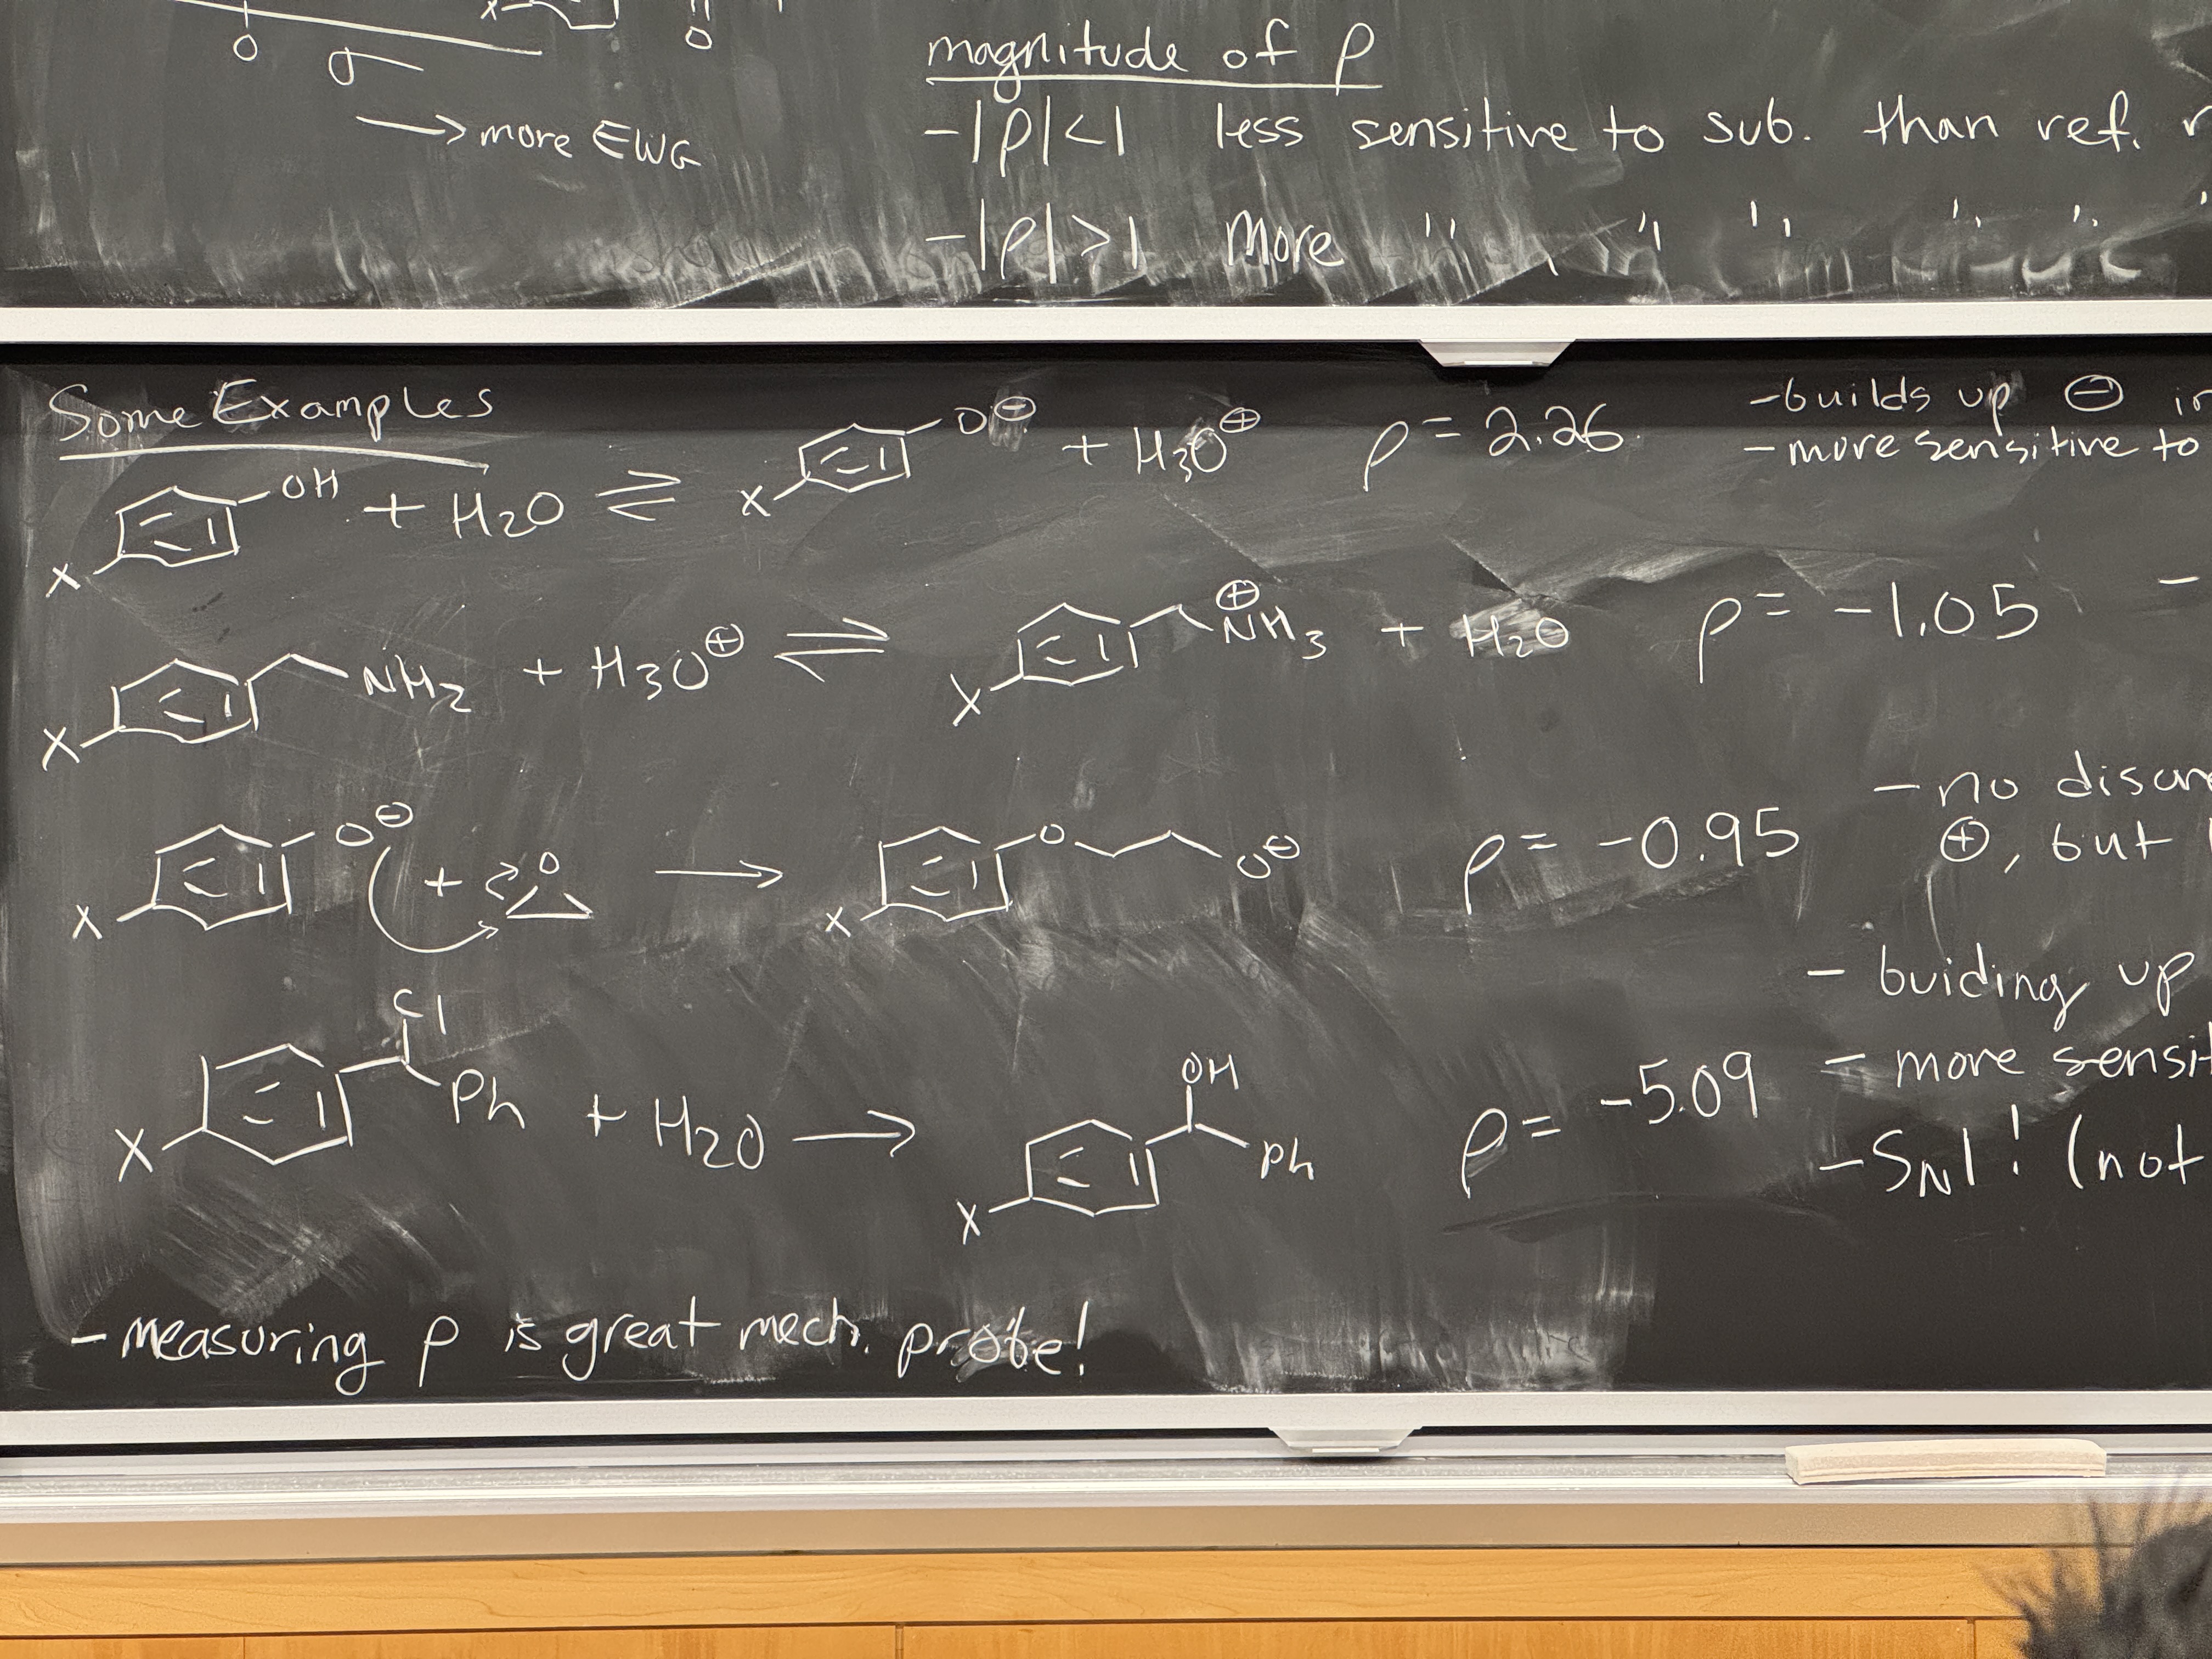 X O
O
σ
→ more EWG
magnitude of ρ
-|ρ|<1 less sensitive to sub. than ref. r
-|ρ|>1 more " " " " "
Some Examples
X OH + H2O ⇌ X O⊖ + H3O⊕ ρ = 2.26
-builds up ⊖ in
-more sensitive to
X NH2 + H3O⊕ ⇌ X ⊕NH3 + H2O ρ = -1.05 -
X O⊖ + O → X O O⊖ ρ = -0.95
-no discre
⊕, but
X Cl Ph + H2O → X OH Ph ρ = -5.09
- buiding up
- more sensit
-SN1! (not
- measuring ρ is great mech. probe!